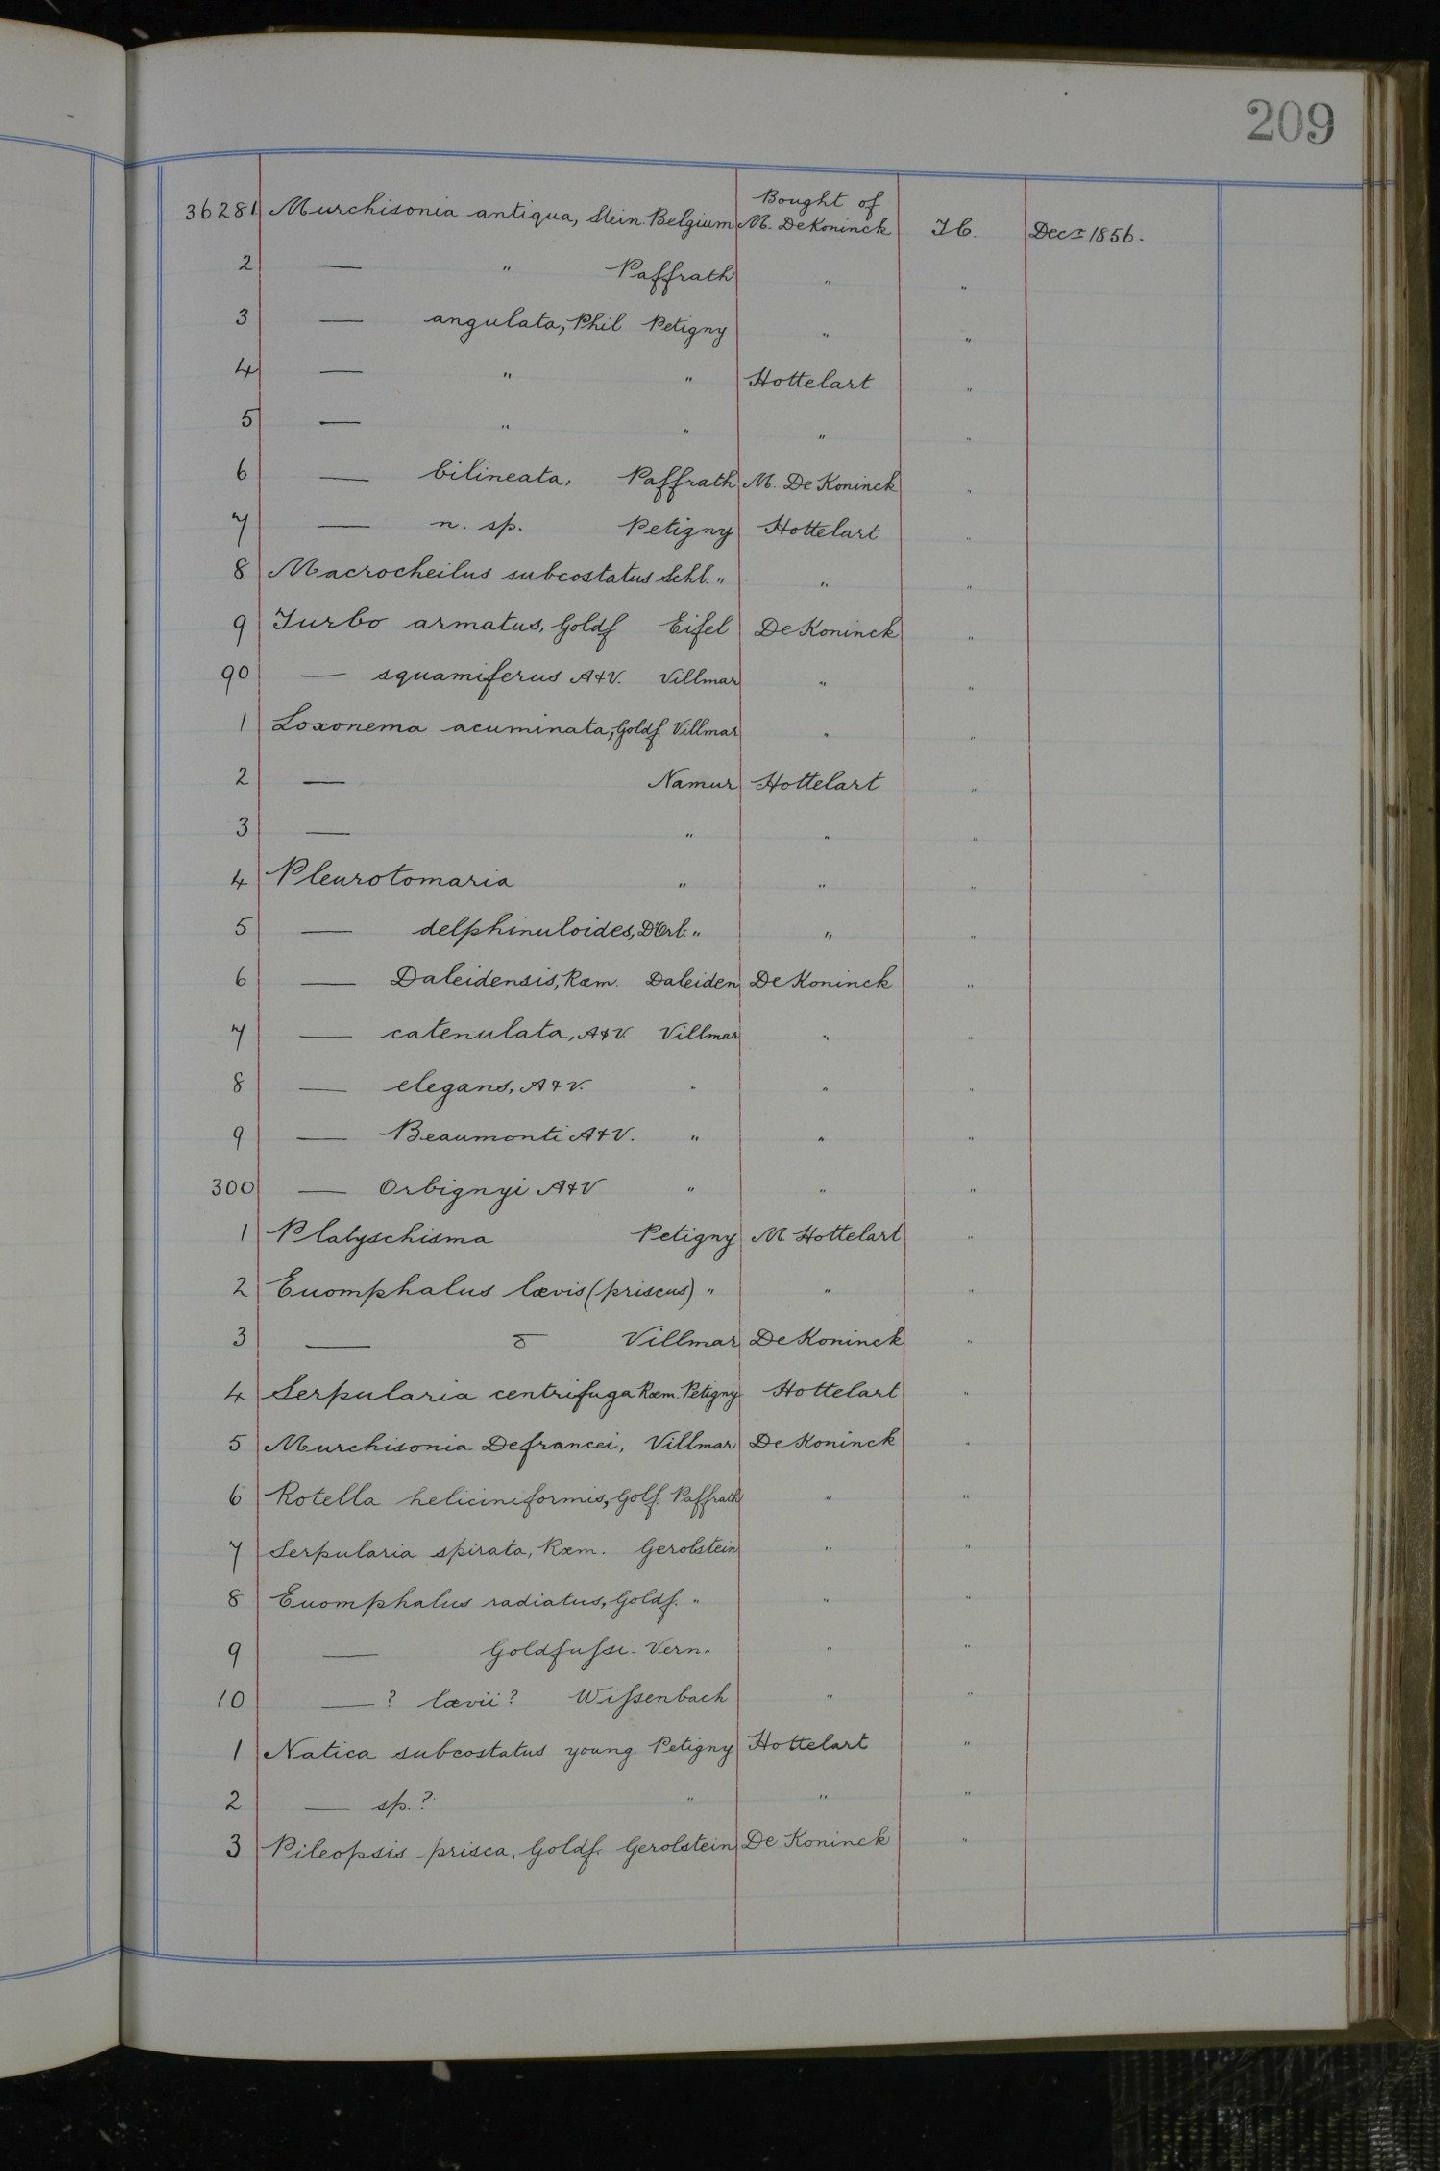 209
36281 Murchisonia antiqua, Stein. Belgium Bought of M. DeKoninck Dec.r 1856.
2 — " Paffrath " "
3 — angulata, Phil Petigny " "
4 — " " Hottelart "
5 — " " " "
6 — bilineata, Paffrath M. De Koninck "
7 — n. sp. Petigny Hottelart "
8 Macrocheilus subcostatus Schl. " " "
9 Turbo armatus, Goldf Eifel De Koninck "
90 — squamiferus A+V. Villmar " "
1 Loxonema acuminata, Goldf Villmar " "
2 — Namur Hottelart "
3 — " " "
4 Pleurotomaria " " "
5 — delphinuloides, D'Orb. " " "
6 — Daleidensis, Rœm. Daleiden De Koninck "
7 — catenulata, A&V. Villmar " "
8 — elegans, A+V. " " "
9 — Beaumonti A+V. " " "
300 — Orbignyi A+V " " "
1 Platyschisma Petigny M Hottelart "
2 Euomphalus lævis (priscus) " " "
3 — Villmar De Koninck "
4 Serpularia centrifuga Rœm. Petigny Hottelart "
5 Murchisonia Defrancei, Villmar De Koninck "
6 Rotella heliciniformis, Golf. Paffrath " "
7 Serpularia spirata, Rœm. Gerolstein " "
8 Euomphalus radiatus, Goldf. " " "
9 — Goldfufsi. Vern. " "
10 — ? lævii? Wifsenbach " "
1 Natica subcostatus young Petigny Hottelart "
2 — sp.? " " "
3 Pileopsis prisca, Goldf. Gerolstein De Koninck "